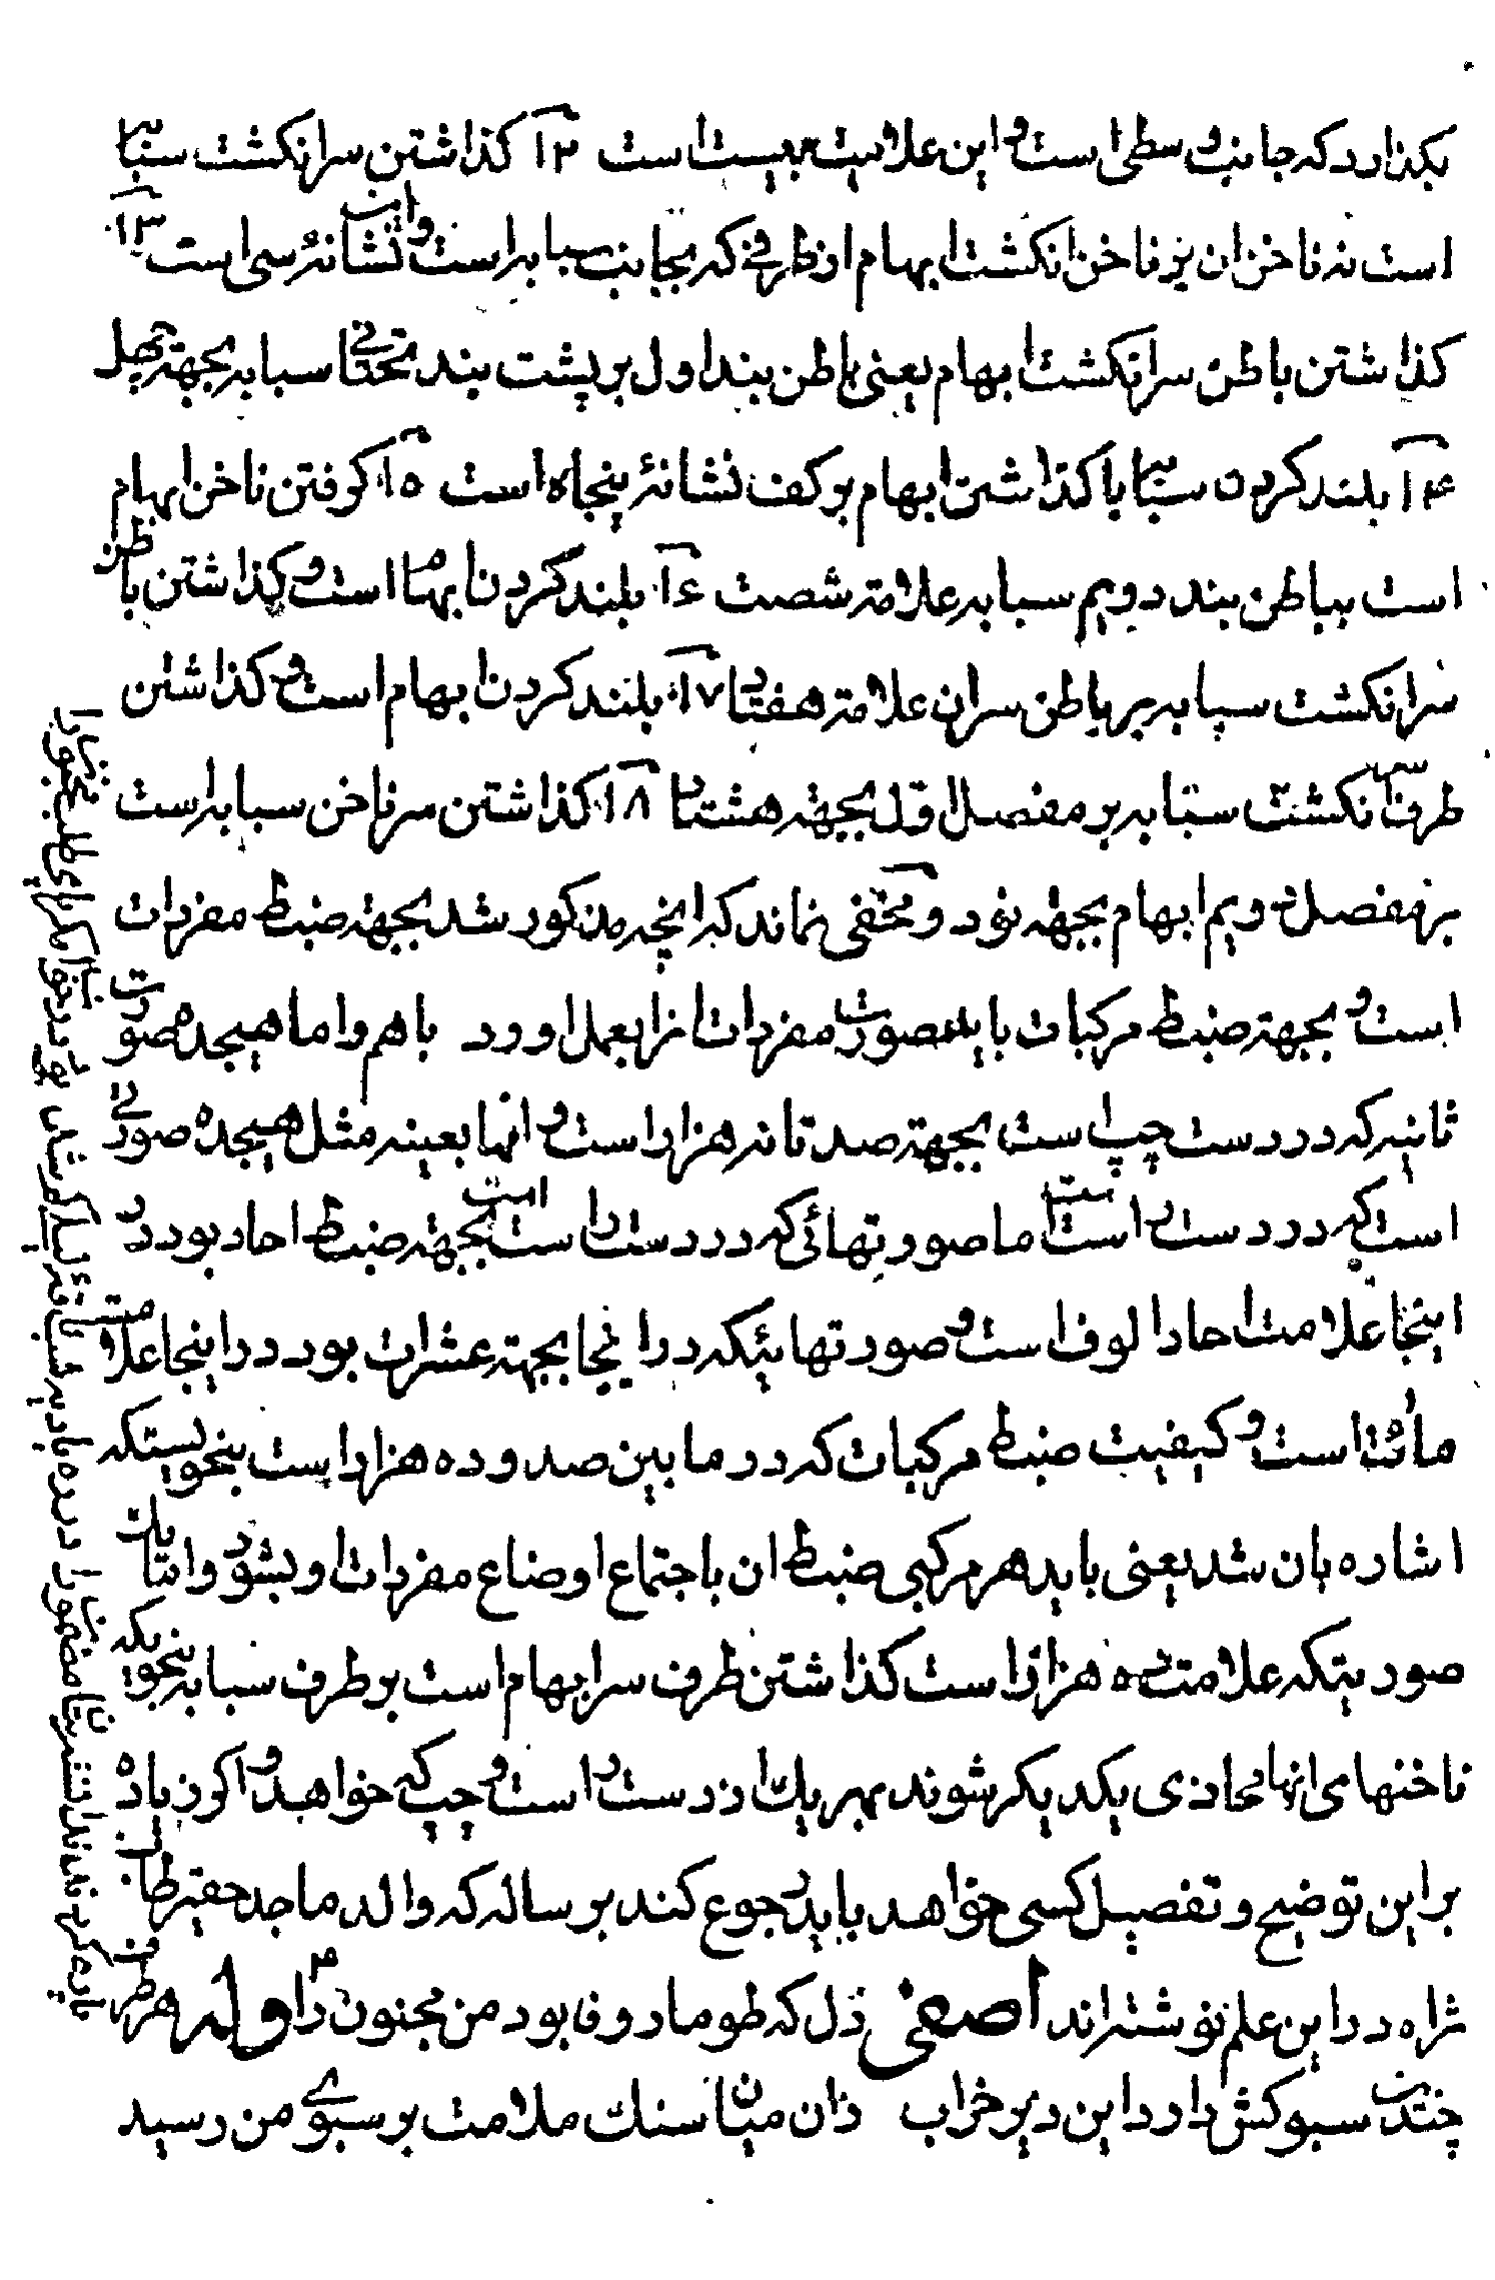 بکذارد که جانب وسطی است و این علامت بیست است ۱۲ کذاشتن سر انکشت سبابه
است نه ناخن ان بر ناخن انکشت ابهام از طرفی که بجانب سبابه است و این نشانهٔ سی است ۱۳
کذاشتن باطن سر انکشت ابهام یعنی باطن بند اول بر پشت بند تحتانی سبابه بجهته چهل
۱۴ بلند کردن سبابه با کذاشتن ابهام بر کف نشانهٔ پنجاه است ۱۵ کرفتن ناخن ابهام
است بباطن بند دویم سبابه علامته شصت ۱۶ بلند کردن ابهام است و کذاشتن باطن
سر انکشت سبابه بر باطن سر ان علامته هفتاد ۱۷ بلند کردن ابهام است و کذاشتن
طرف سر انکشت سبابه بر مفصل اول بجهته هشتاد ۱۸ کذاشتن سر ناخن سبابه است
بر مفصل دویم ابهام بجهته نود و مخفی نماند که انچه مذکور شد بجهته ضبط مفردات
است و بجهته ضبط مرکبات باید صورت مفردات انرا بعمل اورد باهم واما هیجده صورت
ثانیه که در دست چپ است بجهته صد تا نه هزار است و انها بعینه مثل هیجده صورتی
است که در دست راست است اما صورتهائی که در دست راست است بجهته ضبط احاد بود در
اینجا علامت احاد الوف است و صورتهائیکه در اینجا بجهته عشرات بود در اینجا علامت
مائت است و کیفیت ضبط مرکبات که در ما بین صد و ده هزار است بنحویستکه
اشاره بان شد یعنی باید هر مرکبی ضبط ان باجتماع اوضاع مفردات او بشود واما یک
صورتیکه علامت ده هزار است کذاشتن طرف سر ابهام است بر طرف سبابه بنحویکه
ناخنهای انها محاذی یکدیکر شوند بهر یک از دست راست و چپ که خواهد و اکر زیاده
بر این توضیح و تفصیل کسی خواهد باید رجوع کند برساله که والد ماجد حقیر طاب
ثراه در این علم نوشته اند اصفی دل که طومار وفا بود من مجنون را وله هر طرف
چندین سبوکش دارد این دیر خراب زان میان سنک ملامت بر سبوی من رسید
پاره کردند ندانسته بتان مضمون را در ره بادیه